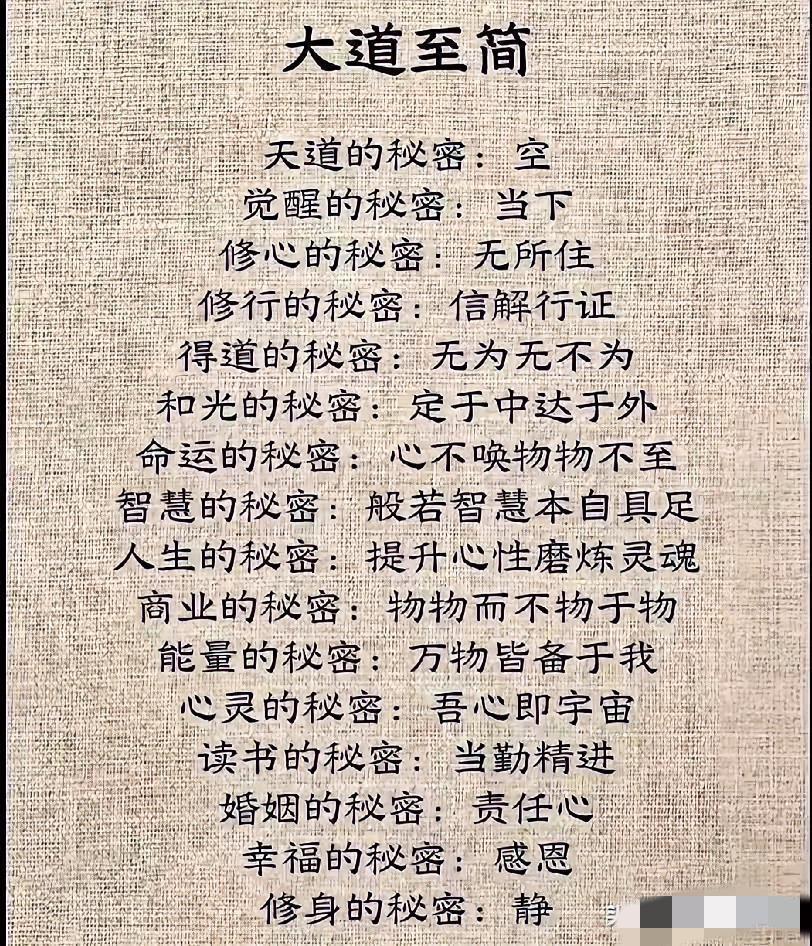 大道至简
天道的秘密：空
觉醒的秘密：当下
修心的秘密：无所住
修行的秘密：信解行证
得道的秘密：无为无不为
和光的秘密：定于中达于外
命运的秘密：心不唤物物不至
智慧的秘密：般若智慧本自具足
人生的秘密：提升心性磨炼灵魂
商业的秘密：物物而不物于物
能量的秘密：万物皆备于我
心灵的秘密：吾心即宇宙
读书的秘密：当勤精进
婚姻的秘密：责任心
幸福的秘密：感恩
修身的秘密：静